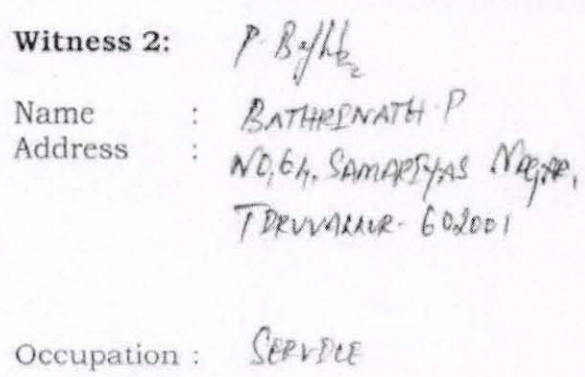 Witness 2: P. Bathri
Name : BATHRINATH P
Address : NO, 64, SAMARIYAS NAGAR,
TIRUVALLUR - 602001
Occupation : SERVICE